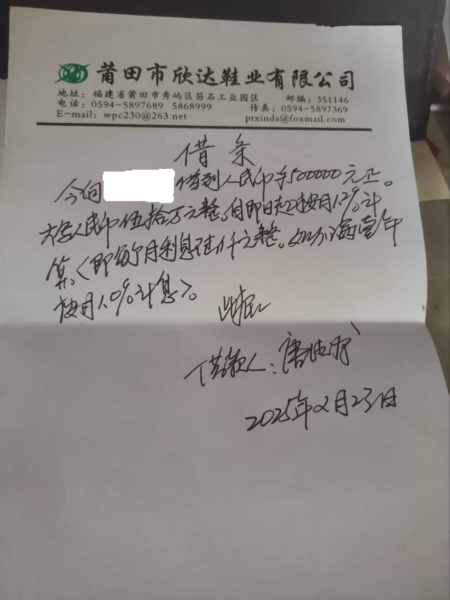 莆田市欣达鞋业有限公司
地址：福建省莆田市秀屿区笏石工业园区 邮编：351146
电话：0594-5897689 5868999 传真：0594-5897369
E-mail：wpc230@263.net ptxinda@foxmail.com
借条
今向 借到人民币￥500000元正。
大写人民币伍拾万元整，自即日起按月1.2%计
算《即每个月利息陆仟元整。如不满壹年
按月1.0%计息》。
此据
借款人：唐
2025年2月23日